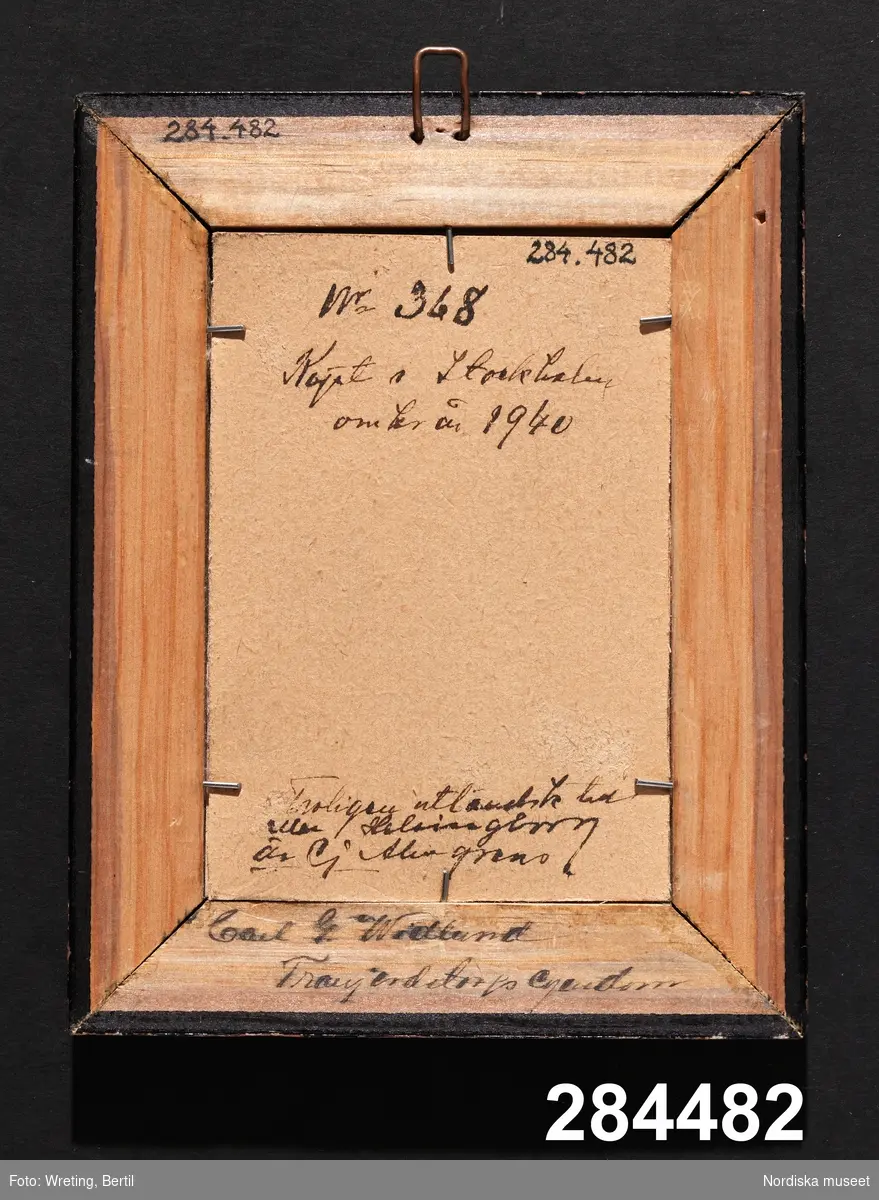 284.482
284.482
Nr 368
Köpt i Stockholm
omkr år 1940
Troligen utländsk
eller Helsingborg
är Cj Almgrens
Carl G Wedlund
egendom
284482
Foto: Wreting, Bertil
Nordiska museet